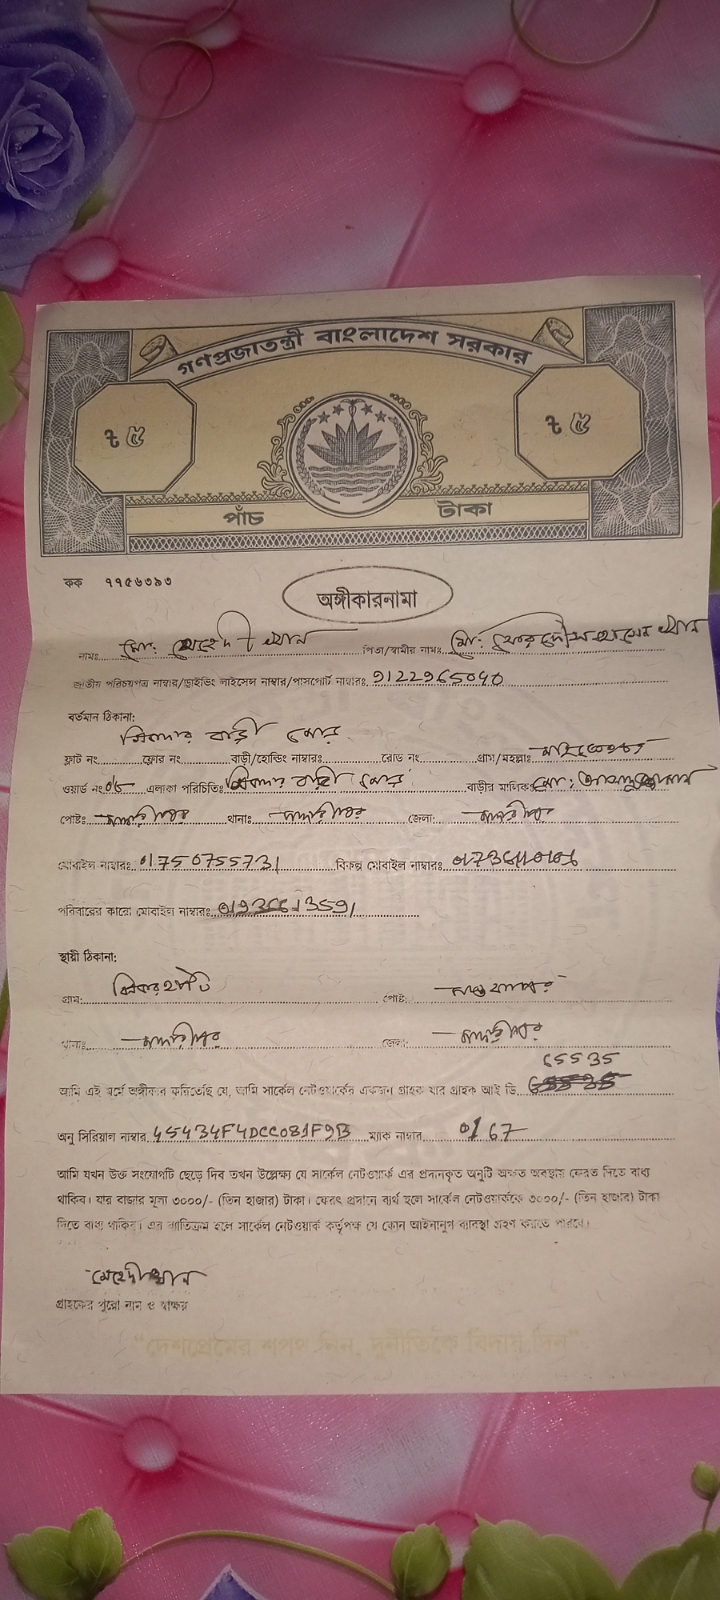 গণপ্রজাতন্ত্রী বাংলাদেশ সরকার
৳ ৫ ৳ ৫
পাঁচ টাকা
কক ৭৭৫৬৩৯৩
অঙ্গীকারনামা
নামঃ মো: মেহেদী খান পিতা/স্বামীর নামঃ মো: ফেরদৌস খান
জাতীয় পরিচয়পত্র নাম্বার/ড্রাইভিং লাইসেন্স নাম্বার/পাসপোর্ট নাম্বারঃ 9122965040
বর্তমান ঠিকানা:
সিকদার বাড়ী মোর
ফ্লাট নং ফ্লোর নং বাড়ী/হোল্ডিং নাম্বারঃ রোড নং গ্রাম/মহল্লাঃ
ওয়ার্ড নং এলাকা পরিচিতিঃ সিকদার বাড়ী মোর বাড়ীর মালিকঃ মো:
পোষ্টঃ মাদারীপুর থানাঃ মাদারীপুর জেলা: মাদারীপুর
মোবাইল নাম্বারঃ 01750755731 বিকল্প মোবাইল নাম্বারঃ
পরিবারের কারো মোবাইল নাম্বারঃ
স্থায়ী ঠিকানা:
গ্রাম: পোষ্ট:
থানাঃ মাদারীপুর জেলা: মাদারীপুর
65535
আমি এই মর্মে অঙ্গীকার করিতেছি যে, আমি সার্কেল নেটওয়ার্কের একজন গ্রাহক যার গ্রাহক আই ডি
অনু সিরিয়াল নাম্বার 45434F4DCC081F9B ম্যাক নাম্বার 0167
আমি যখন উক্ত সংযোগটি ছেড়ে দিব তখন উল্লেক্ষ্য যে সার্কেল নেটওয়ার্ক এর প্রদানকৃত অনুটি অক্ষত অবস্থায় ফেরত দিতে বাধ্য
থাকিব। যার বাজার মূল্য ৩০০০/- (তিন হাজার) টাকা। ফেরৎ প্রদানে ব্যর্থ হলে সার্কেল নেটওয়ার্ককে ৩০০০/- (তিন হাজার) টাকা
দিতে বাধ্য থাকিব। এর ব্যতিক্রম হলে সার্কেল নেটওয়ার্ক কর্তৃপক্ষ যে কোন আইনানুগ ব্যবস্থা গ্রহণ করতে পারবে।
মেহেদী খান
গ্রাহকের পুরো নাম ও স্বাক্ষর
"দেশপ্রেমের শপথ নিন, দুর্নীতিকে বিদায় দিন"